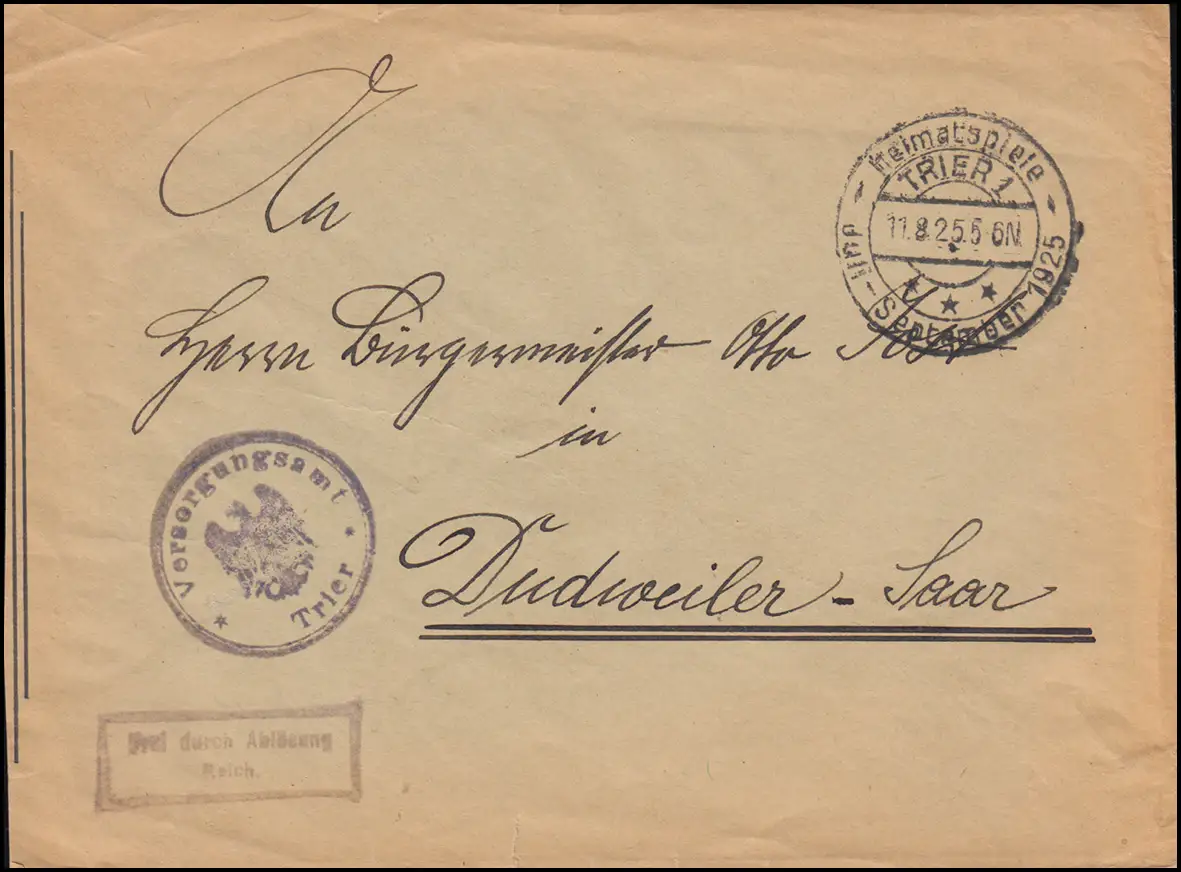 An
Heimatspiele
TRIER 1
11.8.25.5-6N.
September 1925
Herrn Bürgermeister Otto
in
Versorgungsamt
Trier
Dudweiler - Saar
Frei durch Ablösung
Reich.